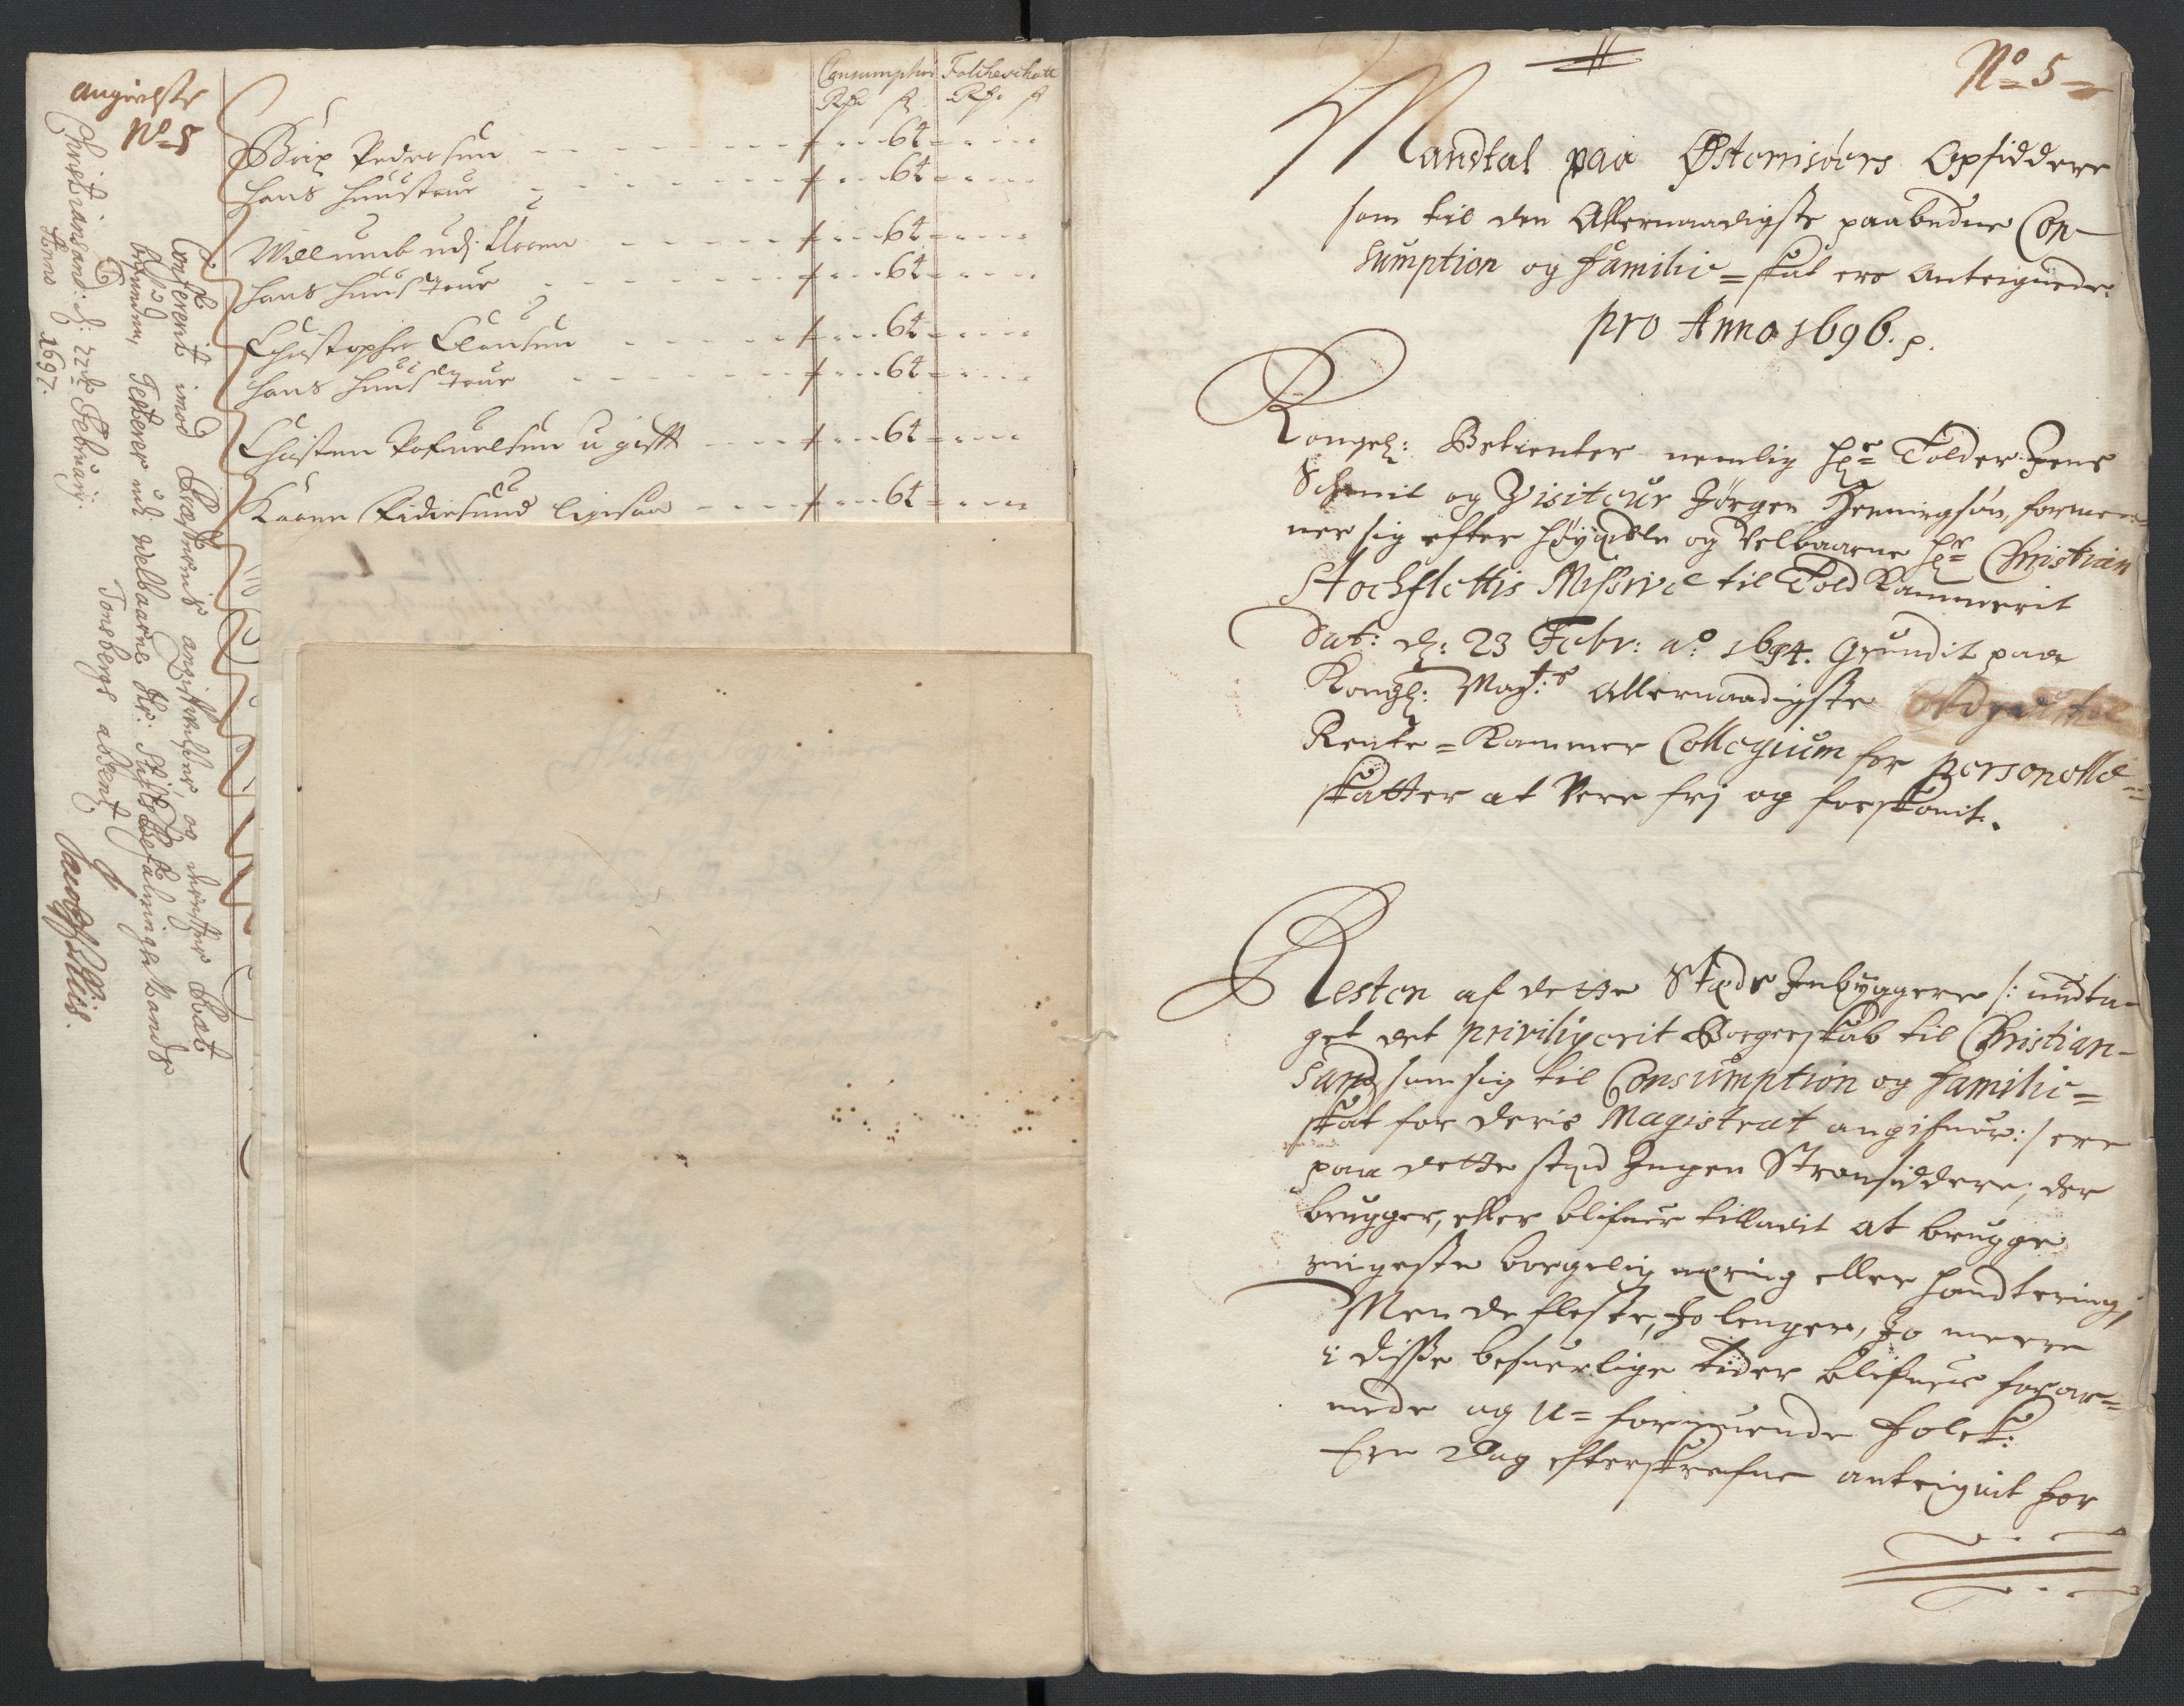 angivelse
No 5
Consumption Folcheschatt
Rdr ß Rdr ß
Brix Pedersen - - - 64 -
hans hustrue - - - 64 -
Willumb udj - - - 64 -
hans hustrue - - - 64 -
Christopher Clausen - - - 64 -
hans hustrue - - - 64 -
Christen ugifft - - - 64 -
Karen ligesaa - - - 64 -
Confererit imod angiffvelser, og derefter Rœt
befunden, Testerer udj welbaarne Hr: Stifts Befalnings Mands
Tonsbergs absentz
Christiansand d: 22de Februarij.
Anno 1697.
No 5
Mandtal paa Østerrisøers Opsiddere
som til den Allernaadigste paabudne Con-
sumption og familie-skat ere Anteignede
pro Anno 1696. p.
Kongel: Betienter nemlig Hr Tolder Jens
Schmit og Visiteur Jørgen Henningsøn, formee-
ner sig efter høyædle og Velbaarne Hr Christian
Stochflettis Missive til Told Kammerit
Dat: d: 23 Febr: ao 1694. grundit paa
Kongl: Mayts allernaadigste
Rente-Kammer Collegium for personelle
skatter at Vere frj og forskonit.
Resten af dette Stæds Inbyggere /: undta-
get det priviligerit Borgerskab til Christian-
sand som sig til Consumption og familie-
skat for deris Magistrat angifver :/ ere
paa dette stæd Ingen Stransiddere, der
brugger, eller blifver tilladit at brugge
ringeste borgelig næring eller handtering,
Men de fleste, Jo lenger, Jo meere
i disse besværlige tider blifver forar-
mede og U-formuende folck:
Ere Dag efterskrefne anteignit for